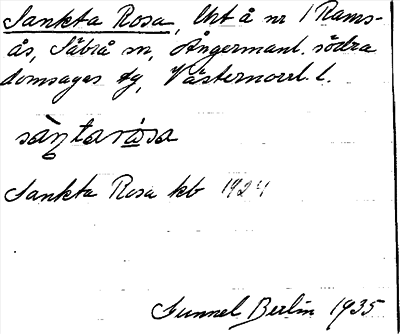 Sankta Rosa, Urt å nr 1 Rams-
ås, Säbrå sn, Ångermanl. södra
domsagas tg, Västernorrl. l.
santarosa
Sankta Rosa kb 1924
Gunnel Berlin 1935